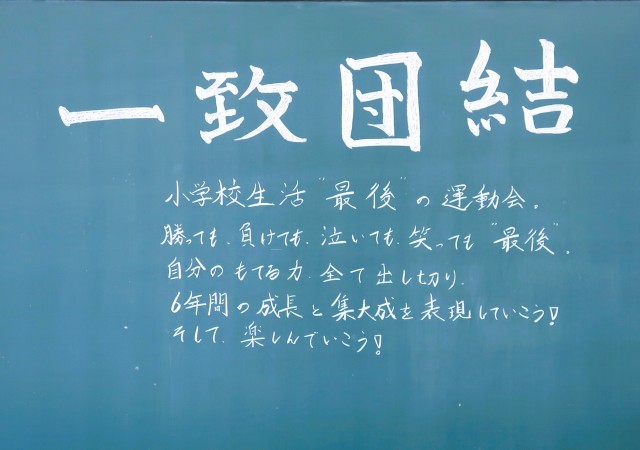 一致団結
小学校生活"最後"の運動会。
勝っても、負けても、泣いても、笑っても"最後"。
自分のもてる力、全て出し切り、
6年間の成長と集大成を表現していこう!
そして、楽しんでいこう!